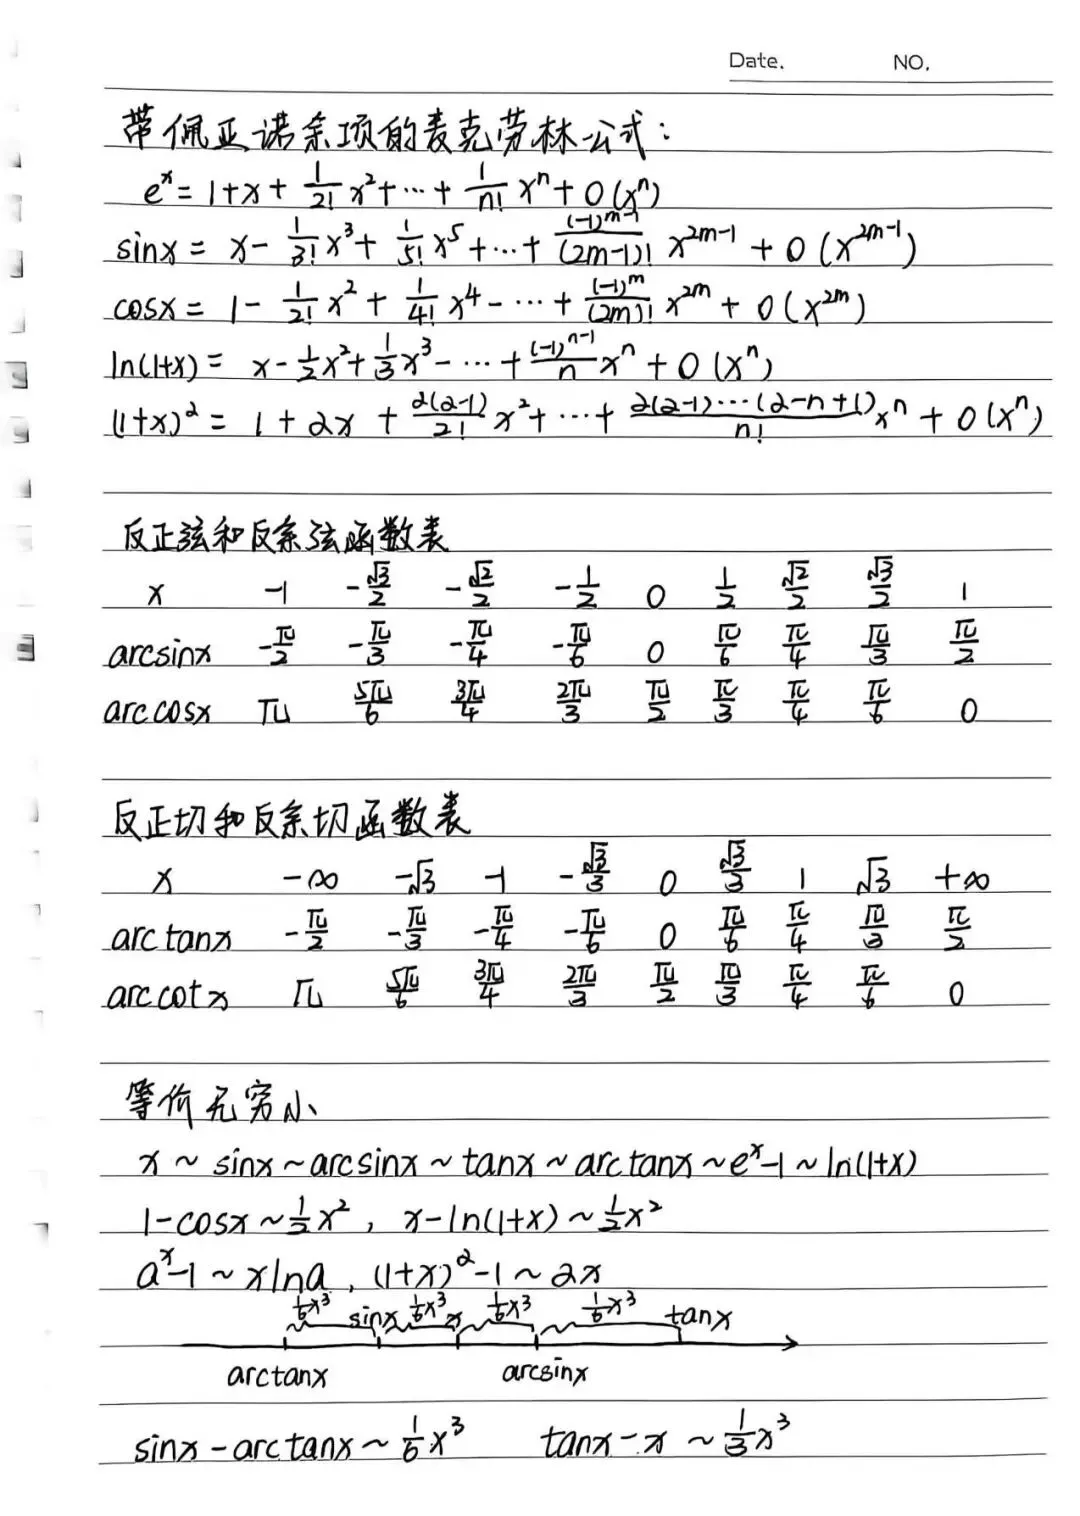 Date. NO.
带佩亚诺余项的麦克劳林公式:
e^x = 1+x+ 1/2! x² + ··· + 1/n! x^n + o(x^n)
sinx = x - 1/3! x³ + 1/5! x⁵ + ··· + (-1)^(m-1)/(2m-1)! x^(2m-1) + o(x^(2m-1))
cosx = 1 - 1/2! x² + 1/4! x⁴ - ··· + (-1)^m/(2m)! x^(2m) + o(x^(2m))
ln(1+x) = x - 1/2 x² + 1/3 x³ - ··· + (-1)^(n-1)/n x^n + o(x^n)
(1+x)^α = 1 + αx + α(α-1)/2! x² + ··· + α(α-1)···(α-n+1)/n! x^n + o(x^n)
反正弦和反余弦函数表
x -1 -√3/2 -√2/2 -1/2 0 1/2 √2/2 √3/2 1
arcsinx -π/2 -π/3 -π/4 -π/6 0 π/6 π/4 π/3 π/2
arccosx π 5π/6 3π/4 2π/3 π/2 π/3 π/4 π/6 0
反正切和反余切函数表
x -∞ -√3 -1 -√3/3 0 √3/3 1 √3 +∞
arctanx -π/2 -π/3 -π/4 -π/6 0 π/6 π/4 π/3 π/2
arccotx π 5π/6 3π/4 2π/3 π/2 π/3 π/4 π/6 0
等价无穷小
x ~ sinx ~ arcsinx ~ tanx ~ arctanx ~ e^x-1 ~ ln(1+x)
1-cosx ~ 1/2 x², x-ln(1+x) ~ 1/2 x²
a^x-1 ~ xlna, (1+x)^α-1 ~ αx
1/6 x³ sinx 1/6 x³ x 1/6 x³ 1/6 x³ tanx
arctanx arcsinx
sinx - arctanx ~ 1/6 x³ tanx - x ~ 1/3 x³